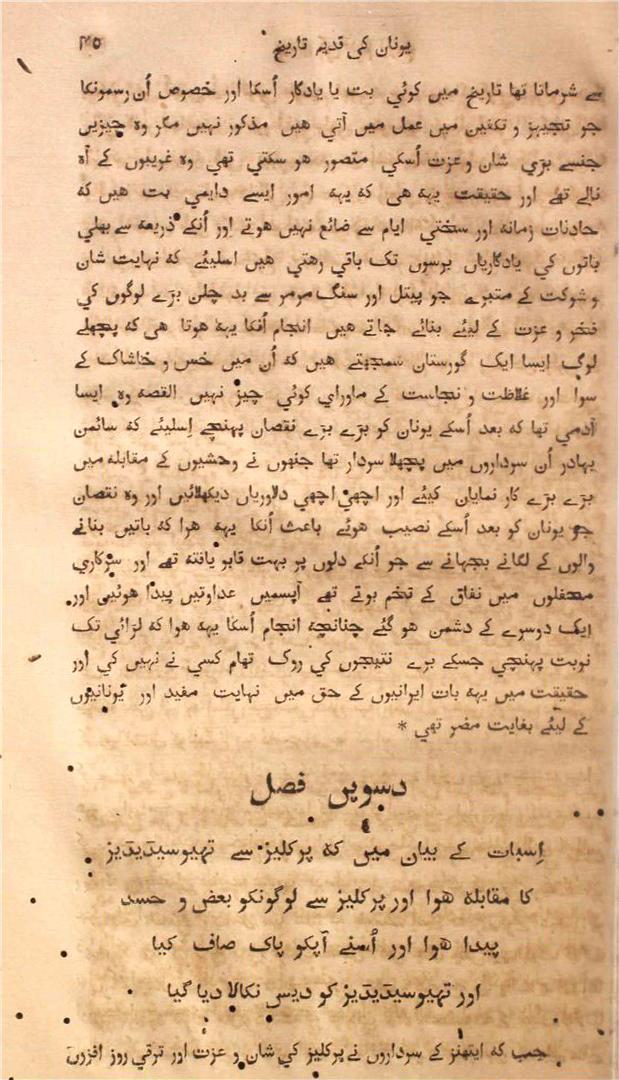 یونان کی قدیم تاریخ ۳۵
سے شرماتا تھا تاریخ میں کوئي بت یا یادگار اُسکا اور خصوص اُن رسمونکا
جو تجہیز و تکفین میں عمل میں آتی ھیں مذکور نہیں مگر وہ چیزیں
جنسے بڑي شان و عزت اُسکي متصور ھو سکتي تھی وہ غریبوں کے آہ
نالے تھے اور حقیقت یہہ ھی کہ یہہ امور ایسے دایمي بت ھیں کہ
حادثات زمانہ اور سختي ایام سے ضائع نہیں ھوتے اور اُنکے ذریعہ سے بھلي
باتوں کي یادگاریاں برسوں تک باقي رھتي ھیں اسلیئے کہ نہایت شان
و شوکت کے مقبرے جو پیتل اور سنگ مرمر سے بد چلن بڑے لوگوں کي
فخر و عزت کے لیئے بنائے جاتے ھیں انجام اُنکا یہہ ھوتا ھی کہ پچھلے
لوگ ایسا ایک گورستان سمجھتے ھیں کہ اُن میں خس و خاشاک کے
سوا اور غلاظت و نجاست کے ماوراي کوئي چیز نہیں القصہ وہ ایسا
آدمي تھا کہ بعد اُسکے یونان کو بڑے بڑے نقصان پہنچے اِسلیئے کہ سائمن
بہادر اُن سرداروں میں پچھلا سردار تھا جنھوں نے وحشیوں کے مقابلہ میں
بڑے بڑے کار نمایاں کیئے اور اچھي اچھي دلاوریاں دیکھلائیں اور وہ نقصان
جو یونان کو بعد اُسکے نصیب ھوئے باعث اُنکا یہہ ھوا کہ باتیں بنانے
والوں کے لگانے بجھانے سے جو اُنکے دلوں پر بہت قابو یافتہ تھے اور سرکاري
محفلوں میں نفاق کے تخم بوتے تھے آپسمیں عداوتیں پیدا ھوئیں اور
ایک دوسرے کے دشمن ھو گئے چنانچہ انجام اُسکا یہہ ھوا کہ لڑائي تک
نوبت پہنچي جسکے برے نتیجوں کي روک تھام کسي نے نہیں کی اور
حقیقت میں یہہ بات ایرانیوں کے حق میں نہایت مفید اور یونانیوں
کے لیئے بغایت مضر تھي *
دسویں فصل
اِسبات کے بیان میں کہ پرکلیز سے تھیوسیدیدیز
کا مقابلہ ھوا اور پرکلیز سے لوگونکو بعض و حسد
پیدا ھوا اور اُسنے آپکو پاک صاف کیا
اور تھیوسیدیدیز کو دیس نکالا دیا گیا
جب کہ ایتھنز کے سرداروں نے پرکلیز کي شان و عزت اور ترقي روز افزوں